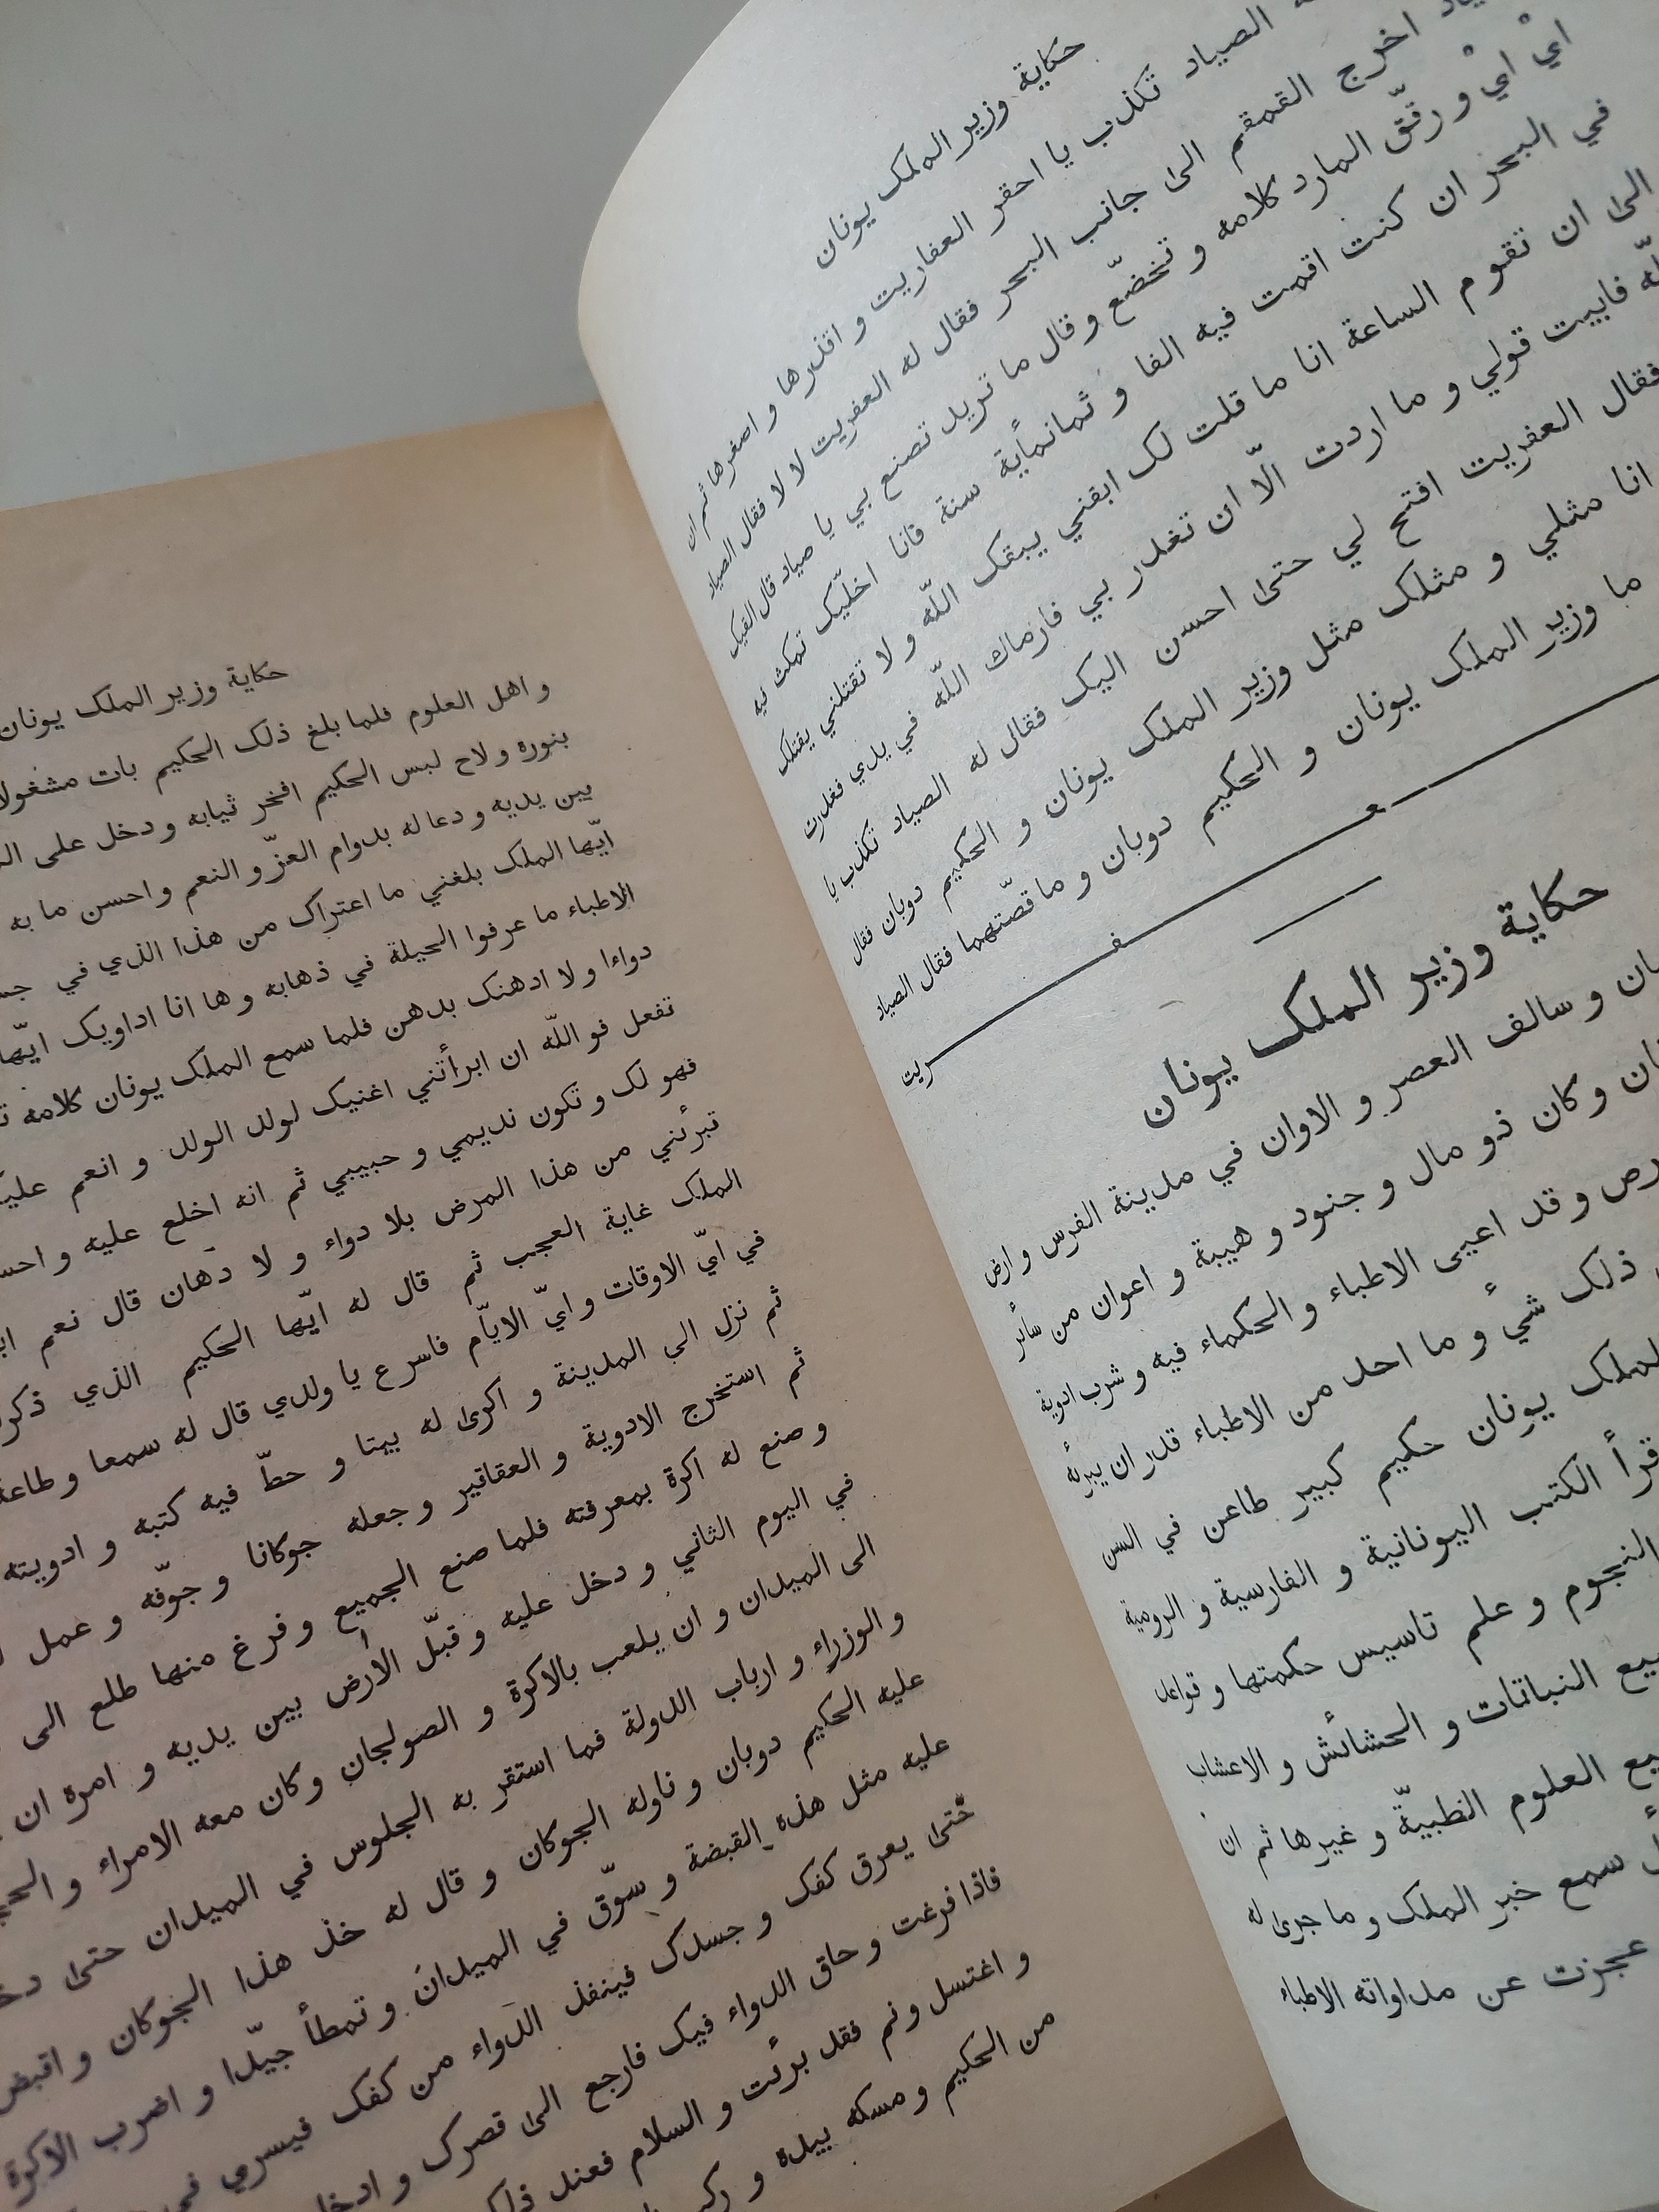 حكاية وزير الملك يونان
الصياد تكذب يا احقر العفاريت و اقذرها و اصغرها ثم ان
اخرج القمقم الى جانب البحر فقال له العفريت لا لا فقال الصياد
ايْ ايْ و رقّق المارد كلامه و تخضّع و قال ما تريد تصنع بي يا صياد قال القيك
في البحر ان كنت اقمت فيه الفا و ثمانمأية سنة فانا اخلّيك تمكث فيه
الى ان تقوم الساعة انا ما قلت لك ابقني يبقك اللّه و لا تقتلني يقتلك
فابيت قولي و ما اردت الّا ان تغدر بي فارماك اللّه في يدي فغدرت
فقال العفريت افتح لي حتى احسن اليك فقال له الصياد تكذب يا
انا مثلي و مثلك مثل وزير الملك يونان و الحكيم دوبان فقال
ما وزير الملك يونان و الحكيم دوبان و ما قصّتهما فقال الصياد
حكاية وزير الملك يونان
و سالف العصر و الاوان في مدينة الفرس و ارض
و كان ذو مال و جنود و هيبة و اعوان من سأىر
و قد اعيى الاطباء و الحكماء فيه و شرب ادوية
ذلك شئ و ما احد من الاطباء قدر ان يبرئه
الملك يونان حكيم كبير طاعن في السن
قرأ الكتب اليونانية و الفارسية و الرومية
النجوم و علم تاسيس حكمتها و قواعد
النباتات و الحشائش و الاعشاب
العلوم الطبيّة و غيرها ثم ان
سمع خبر الملك و ما جرى له
عجزت عن مداواته الاطباء
حكاية وزير الملك يونان
و اهل العلوم فلما بلغ ذلك الحكيم بات مشغولا
بنوره و لاح لبس الحكيم افخر ثيابه و دخل على
بين يديه و دعا له بدوام العزّ و النعم و احسن ما به
ايّها الملك بلغني ما اعتراك من هذا الذي في
الاطباء ما عرفوا الحيلة في ذهابه و ها انا اداويك ايّها
دواءا و لا ادهنك بدهن فلما سمع الملك يونان كلامه
تفعل فو اللّه ان ابرأتني اغنيك لولد الولد و انعم
فهو لك و تكون نديمي و حبيبي ثم انه اخلع عليه و
تبرئني من هذا المرض بلا دواء و لا دهان قال نعم
الملك غاية العجب ثم قال له ايّها الحكيم الذي
في ايّ الاوقات و ايّ الايّام فاسرع يا ولدي قال له سمعا و طاعة
ثم نزل الى المدينة و اكرى له بيتا و حطّ فيه كتبه و ادويته
ثم استخرج الادوية و العقاقير و جعله جوكانا و جوّفه و عمل
و صنع له اكرة بمعرفته فلما صنع الجميع و فرغ منها طلع الى
في اليوم الثاني و دخل عليه و قبّل الارض بين يديه و امره ان
الى الميدان و ان يلعب بالاكرة و الصولجان و كان معه الامراء و
و الوزراء و ارباب الدولة فما استقر به الجلوس في الميدان حتى
عليه الحكيم دوبان و ناوله الجوكان و قال له خذ هذا الجوكان و اقبض
عليه مثل هذه القبضة و سوّق في الميدان و تمطأ جيّدا و اضرب الاكرة
حتى يعرق كفك و جسدك فينفذ الدواء من كفك فيسري
فاذا فرغت و حاق الدواء فيك فارجع الى قصرك و
و اغتسل و نم فقد برئت و السلام فعند
من الحكيم و مسكه بيده و